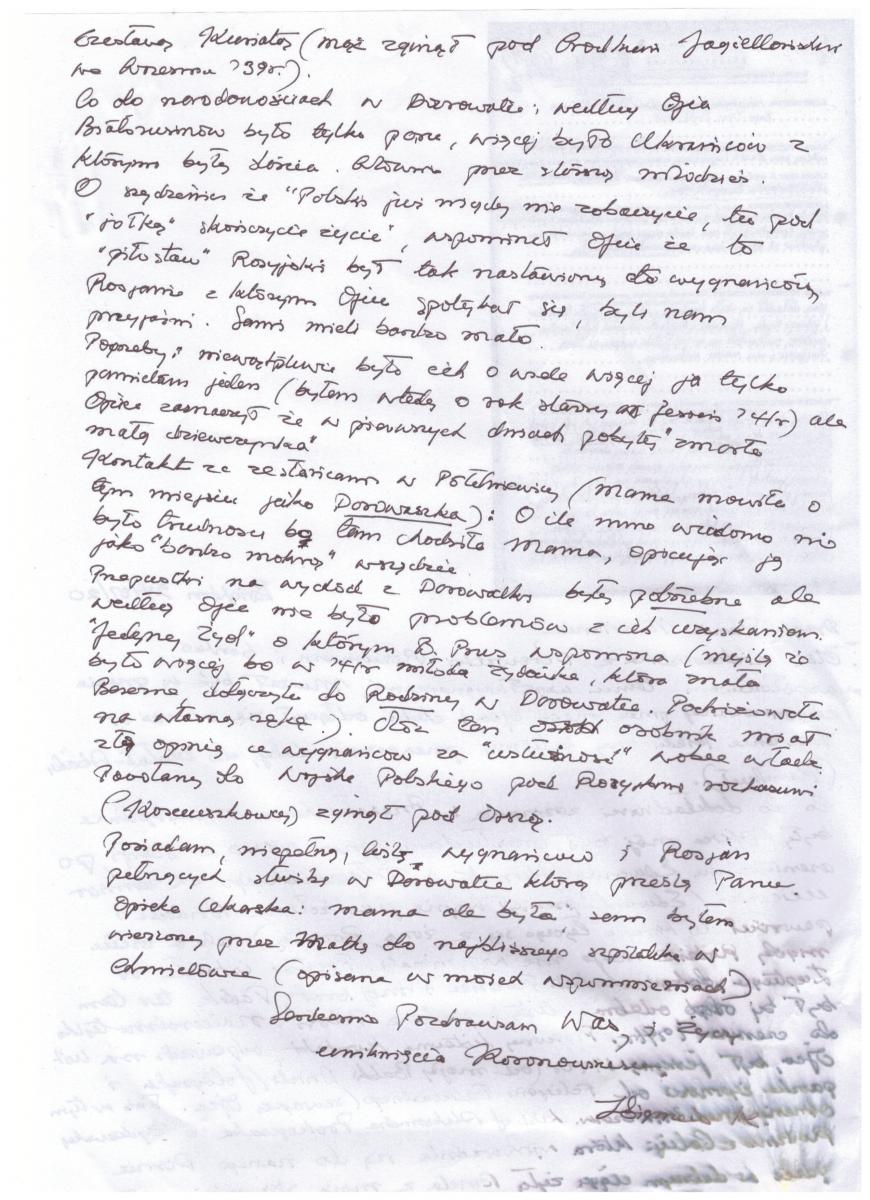 Czesława Kuniatos (mąż zginął pod Gródkiem Jagiellońskim
we Wrześniu 39r.).
Co do narodowościach w Dorowatce; według Ojca
Białorusinów było tylko parę, więcej było Ukraińców z
którymi była złością. Głównie przez starszą młodzież.
O sądzeniu że "Polski już nigdy nie zobaczycie, tu pod
"jołką" skończycie życie", wspominał Ojciec że to
Rosyjski był tak nastawiony do wygnańców,
Rosjanie z którymi Ojciec spotykał się, byli nam
przyjaźni. Sami mieli bardzo mało.
Pogrzeby; niewątpliwie było ich o wiele więcej ja tylko
pamiętam jeden (byłem wtedy o rok starszy Jesień 41r) ale
Ojciec zaznaczył że w pierwszych dniach pobytu "zmarła
mała dziewczynka"
Kontakt ze zesłańcami w (Mama mówiła o
tym miejscu jako Dorowszka): O ile mnie wiadomo nie
było trudności bo tam chodziła Mama, opisując ją
jako "bardzo mokrą" wszędzie
Przepustki na wychód z Dorowatki były potrzebne ale
według Ojca nie było problemów z ich uzyskaniem.
"Jedyny Żyd" o którym B. Prus wspomina (myślę że
było więcej bo w 41r młoda Żydówka, która znała
dołączyła do Rodziny w Dorowatce. Podróżowała
na własną rękę). Otóż ten osobnik miał
złą opinię u wygnańców za "usłużność" wobec władz
Powołany do Wojska Polskiego pod Rosyjskimi rozkazami
(Kościuszkowcy) zginął pod
Posiadam, niepełną, listę wygnańców i Rosjan
pełniących służbę w Dorowatce którą prześlę Panu
Opieka Lekarska: marna ale była; sam byłem
wieziony przez Matkę do najbliższego szpitalika w
Chmielówce (opisane w moich wspomnieniach)
Serdecznie Pozdrawiam Was, i Życzę
uniknięcia Koronowirusa